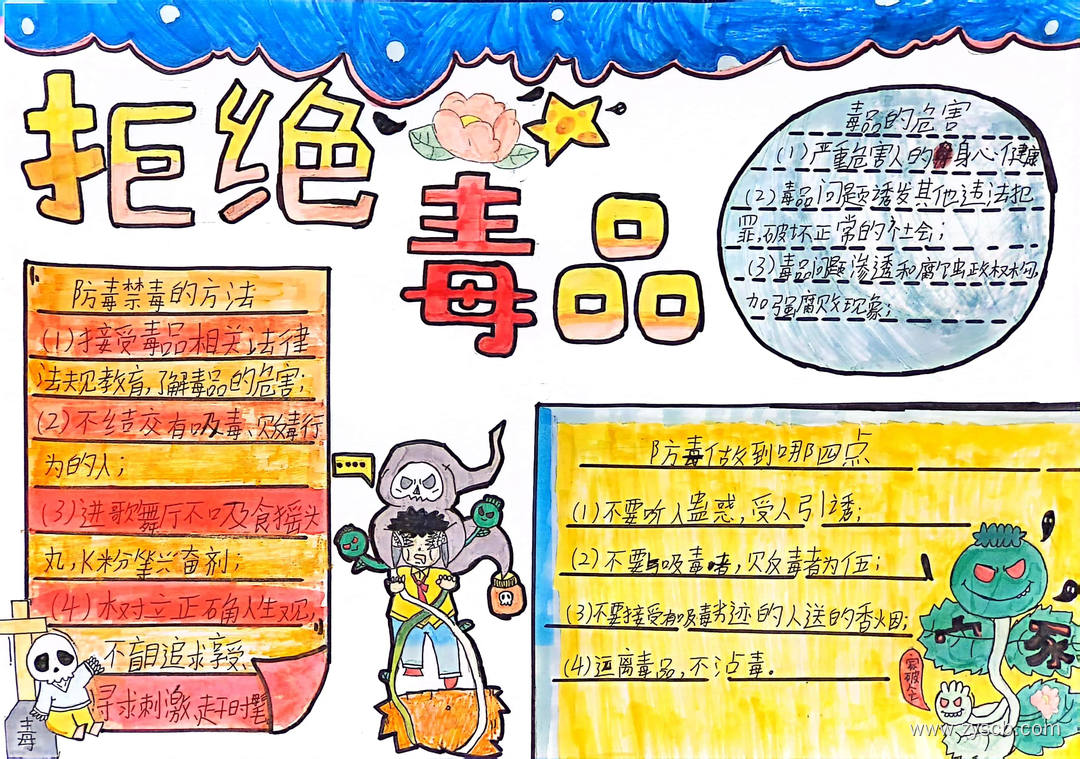 拒绝
毒品
毒品的危害
(1)严重危害人的身心健康
(2)毒品问题诱发其他违法犯
罪,破坏正常的社会;
(3)毒品问题渗透和腐蚀政权构,
加强腐败现象;
防毒禁毒的方法
(1)接受毒品相关法律
法规教育,了解毒品的危害;
(2)不结交有吸毒、贩毒行
为的人;
(3)进歌舞厅不吸食摇头
丸,K粉等兴奋剂;
(4)树立正确人生观,
不盲目追求享受,
寻求刺激,赶时髦
毒
防毒做到哪四点
(1)不要听人蛊惑,受人引诱;
(2)不要与吸毒者,贩毒者为伍;
(3)不要接受有吸毒劣迹的人送的香烟;
(4)远离毒品,不沾毒。
家破人亡
www.zyscb.com